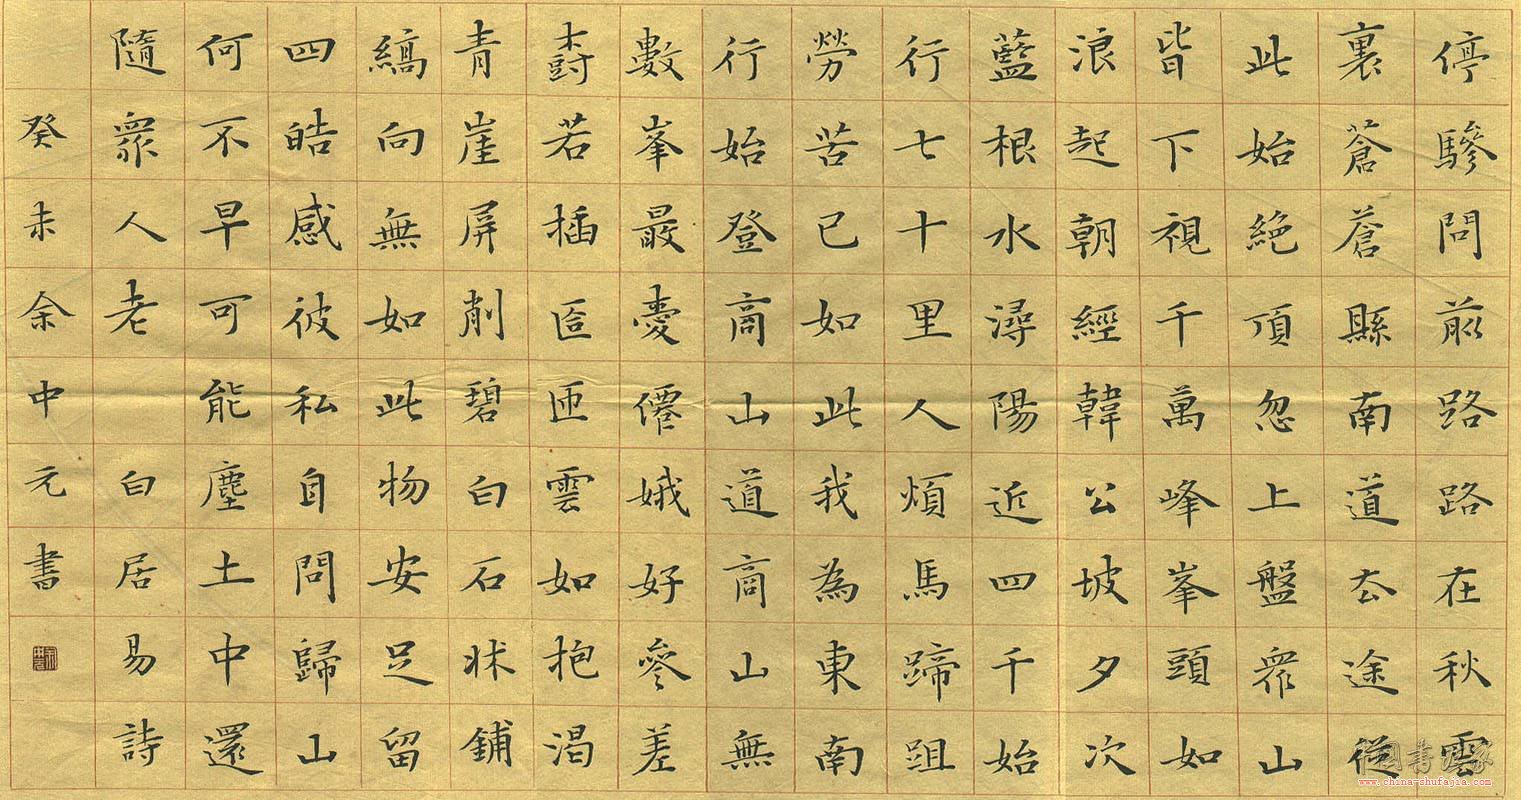 停驂問前路路在秋雲
裏蒼蒼縣南道去途從
此始絕頂忽上盤眾山
皆下視千萬峰峯頭如
浪起朝經韓公坡夕次
藍根水潯陽近四千始
行七十里人煩馬蹄跙
勞苦已如此我為東南
行始登商山道商山無
數峯最愛僊娥好參差
樹若插匼匝雲如抱渴
青崖屏削碧白石牀鋪
縞向無如此物安足留
四皓感彼私自問歸山
何不早可能塵土中還
隨眾人老 白居易詩
癸未余中元書
www.china-shufajia.com